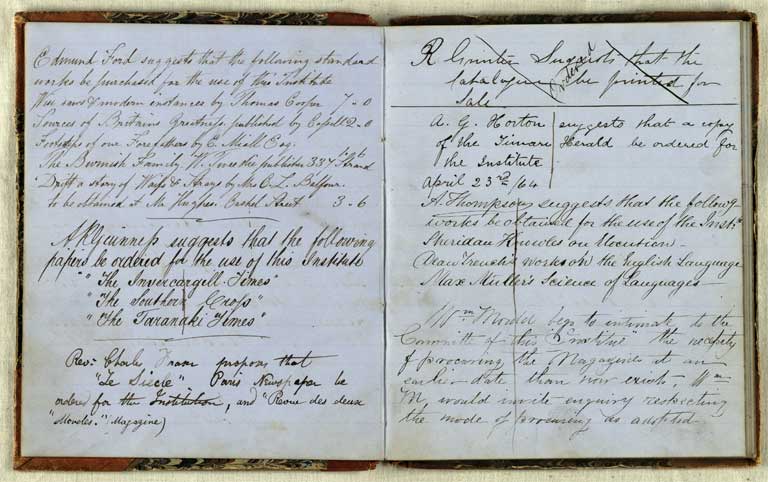 Edmund Ford suggests that the following standard
works be purchased for the use of this Institute
Wise saws & modern instances by Thomas Cooper 7-0
Sources of Britains Greatness published by Cassell 2-0
Footsteps of our Forefathers by E. Miall Esq.
The Burmesh Family W. Tweedie publisher 337 Strand
Drift a story of Waifs & Strays by Mrs C. L. Balfour
to be obtained at Mr Hughes. Cashel Street 3-6
A R Guinness suggests that the following
papers be ordered for the use of this Institute
"The Invercargill Times"
"The Southern Cross"
"The Taranaki Times"
Rev: Charles propose that
"Le Siecle" Paris Newspaper be
ordered for the Institution, and "Revue des deux
Mondes." (Magazine)
R Gunter Suggests that the
Catalogue be printed for
Sale
Ordered
A. G. Horton suggests that a copy
of the Timaru Herald be ordered for
the Institute
April 23rd/64
A. Thompson suggests that the followg
works be obtained for the use of the Instn
Sheridan Knowles on Elocution -
Dean Trench's works on the English Language
Max Muller's Science of Languages -
Wm Mould begs to intimate to the
Committee of this "Institute" the necessity
of procuring the Magazines at an
earlier date than now exists, Wm
M, would invite enquiry respecting
the mode of procuring as adopted